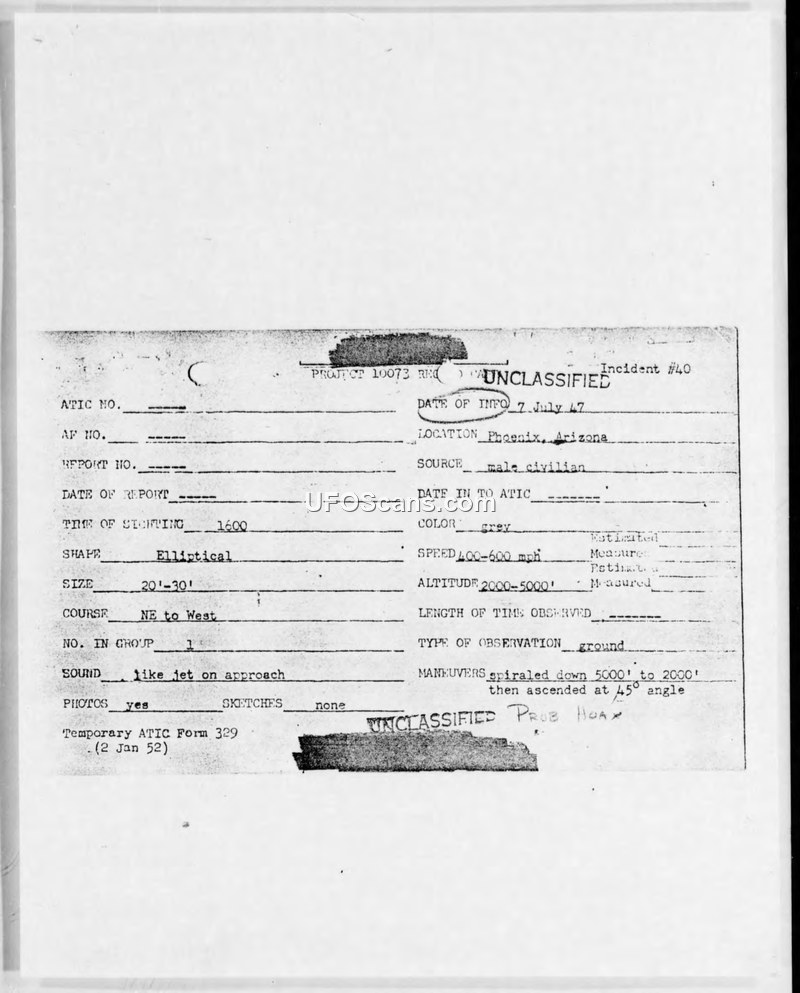 PROJECT 10073 REC CA
UNCLASSIFIED
Incident #40
ATIC NO. -----
DATE OF INFO 7 July 47
AF NO. -----
LOCATION Phoenix, Arizona
REPORT NO. -----
SOURCE male civilian
DATE OF REPORT -----
DATE IN TO ATIC -------
UFOScans.com
TIME OF SIGHTING 1600
COLOR grey
SHAPE Elliptical
Estimated
SPEED 400-600 mph Measured
SIZE 20'-30'
Estimated
ALTITUDE 2000-5000' Measured
COURSE NE to West
LENGTH OF TIME OBSERVED -------
NO. IN GROUP 1
TYPE OF OBSERVATION ground
SOUND like jet on approach
MANEUVERS spiraled down 5000' to 2000'
then ascended at 45° angle
PHOTOS yes SKETCHES none
UNCLASSIFIED
PROB HOAX
Temporary ATIC Form 329
(2 Jan 52)